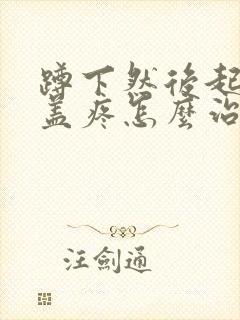 蹲下然後起
盖疼怎麼治
汪劍通